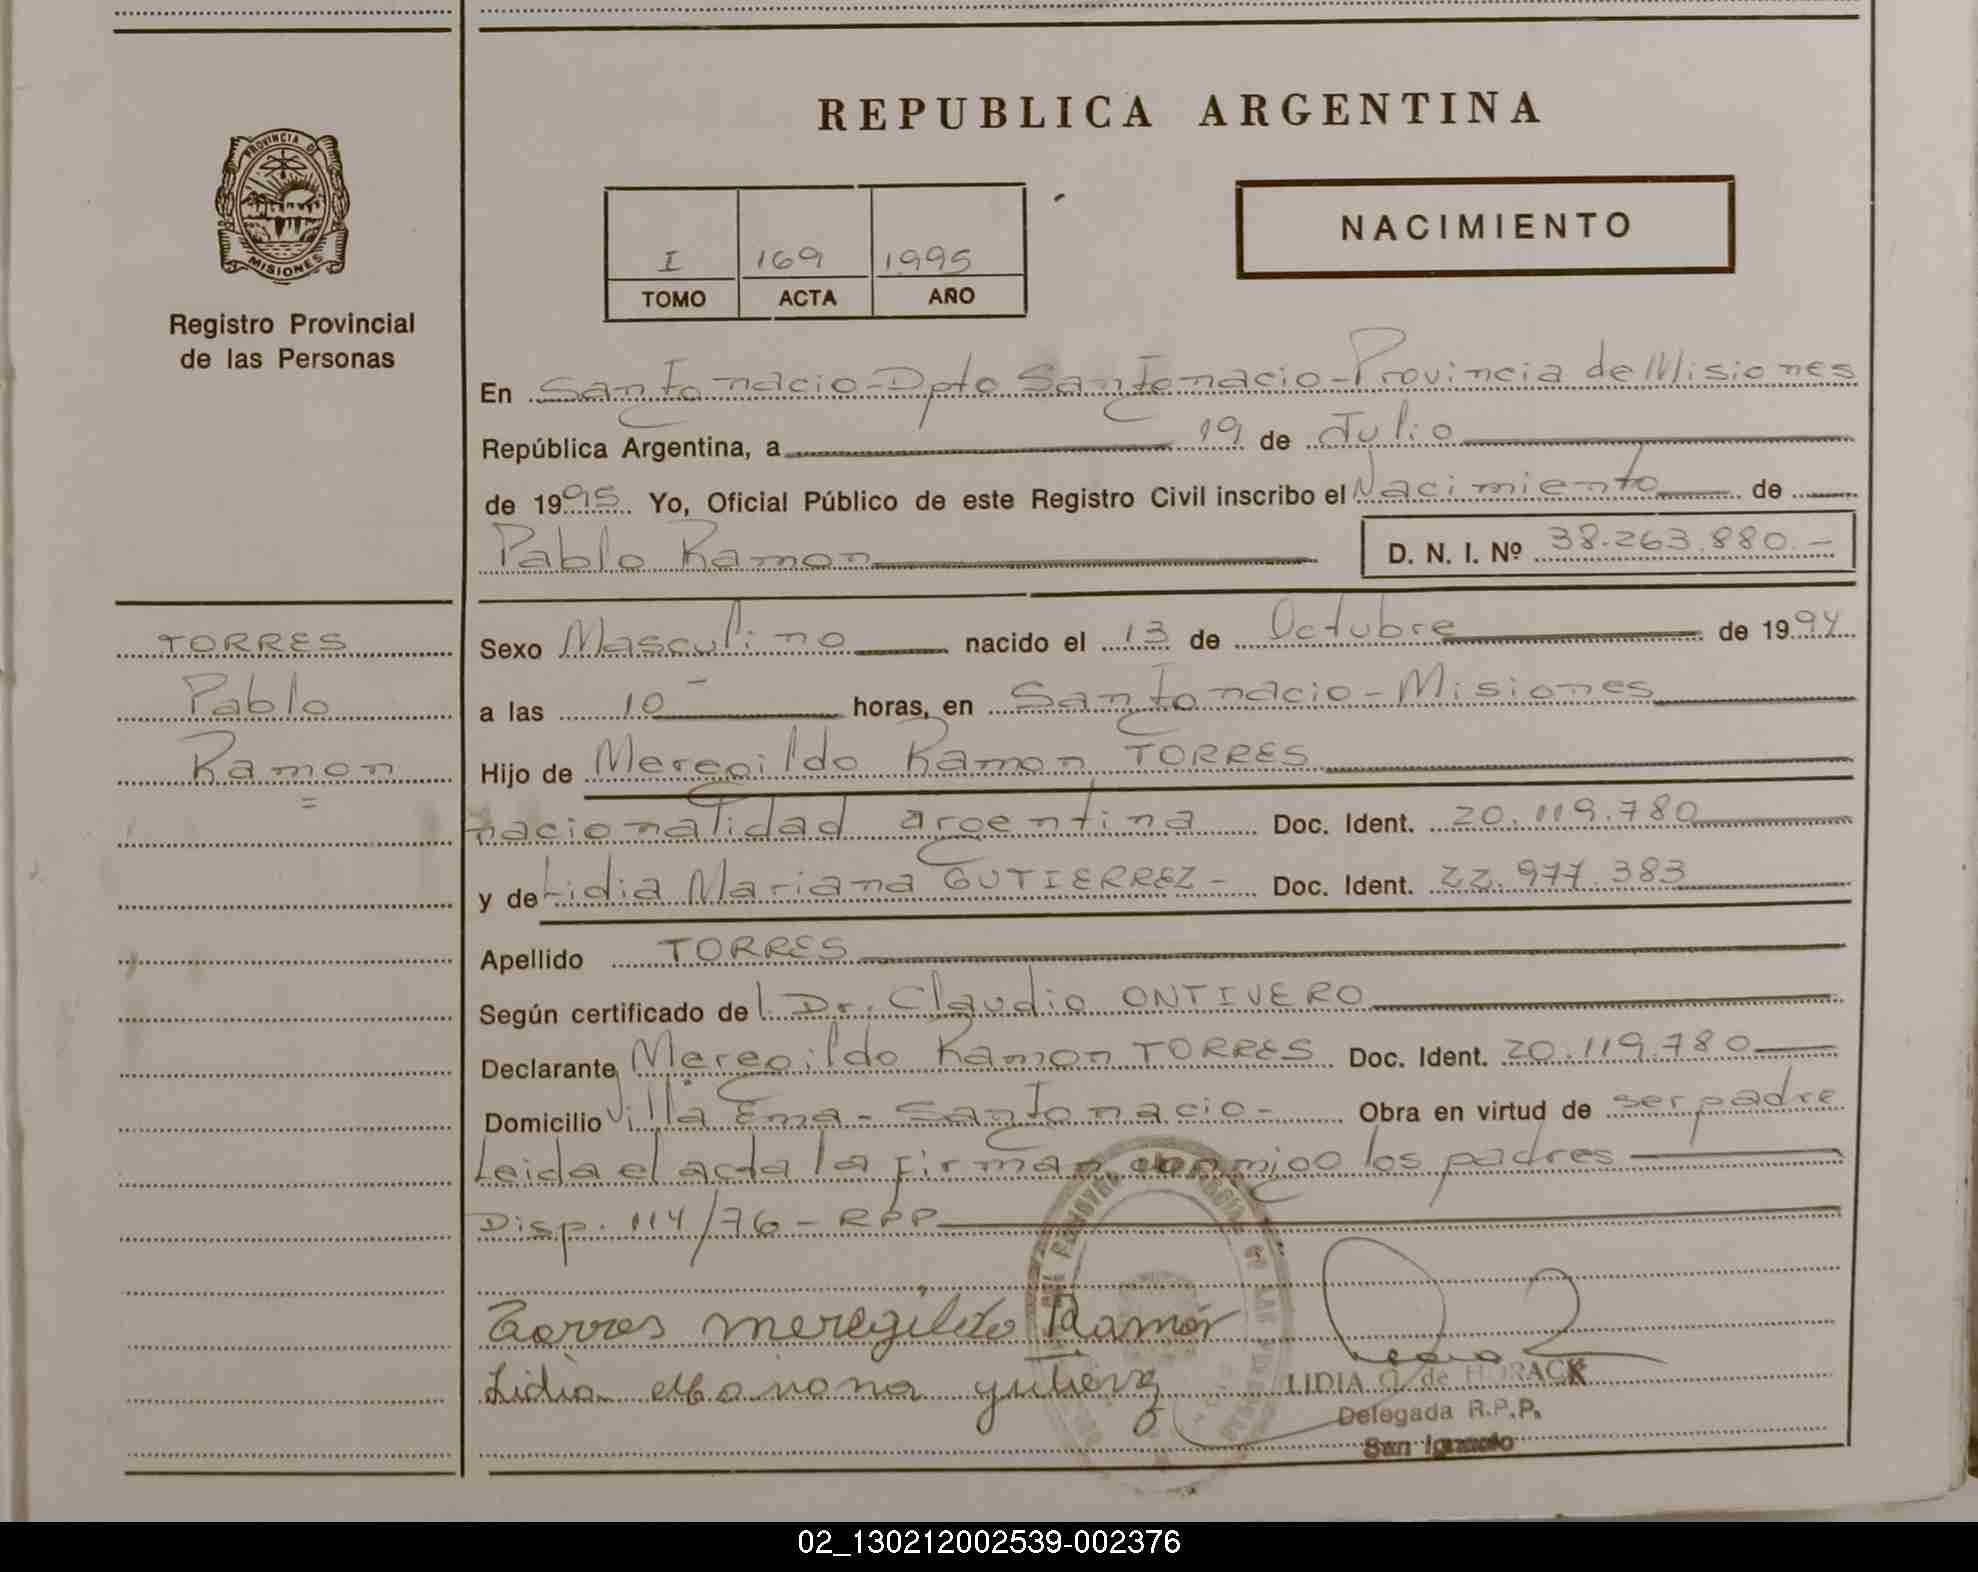 REPUBLICA ARGENTINA
PROVINCIA DE
MISIONES
Registro Provincial
de las Personas
NACIMIENTO
I 169 1995
TOMO ACTA AÑO
En San Ignacio-Dpto San Ignacio-Provincia de Misiones
República Argentina, a 19 de Julio
de 1995 Yo, Oficial Público de este Registro Civil inscribo el Nacimiento de
Pablo Ramon D. N. I. Nº 38.263.880.-
TORRES
Pablo
Ramon
Sexo Masculino nacido el 13 de Octubre de 1994
a las 10 horas, en San Ignacio-Misiones
Hijo de Meregildo Ramon TORRES
nacionalidad argentina Doc. Ident. 20.119.780
y de Lidia Mariana GUTIERREZ- Doc. Ident. 22.977.383
Apellido TORRES
Según certificado del Dr. Claudio ONTIVERO
Declarante Meregildo Ramon TORRES Doc. Ident. 20.119.780
Domicilio Villa Ema-San Ignacio- Obra en virtud de ser padre
Leida el acta la firman conmigo los padres
Disp. 114/76-RPP
Torres meregildo Ramón
Lidia Mariana gutierrez
LIDIA G. de HORACK
Delegada R.P.P.
San Ignacio
02_130212002539-002376